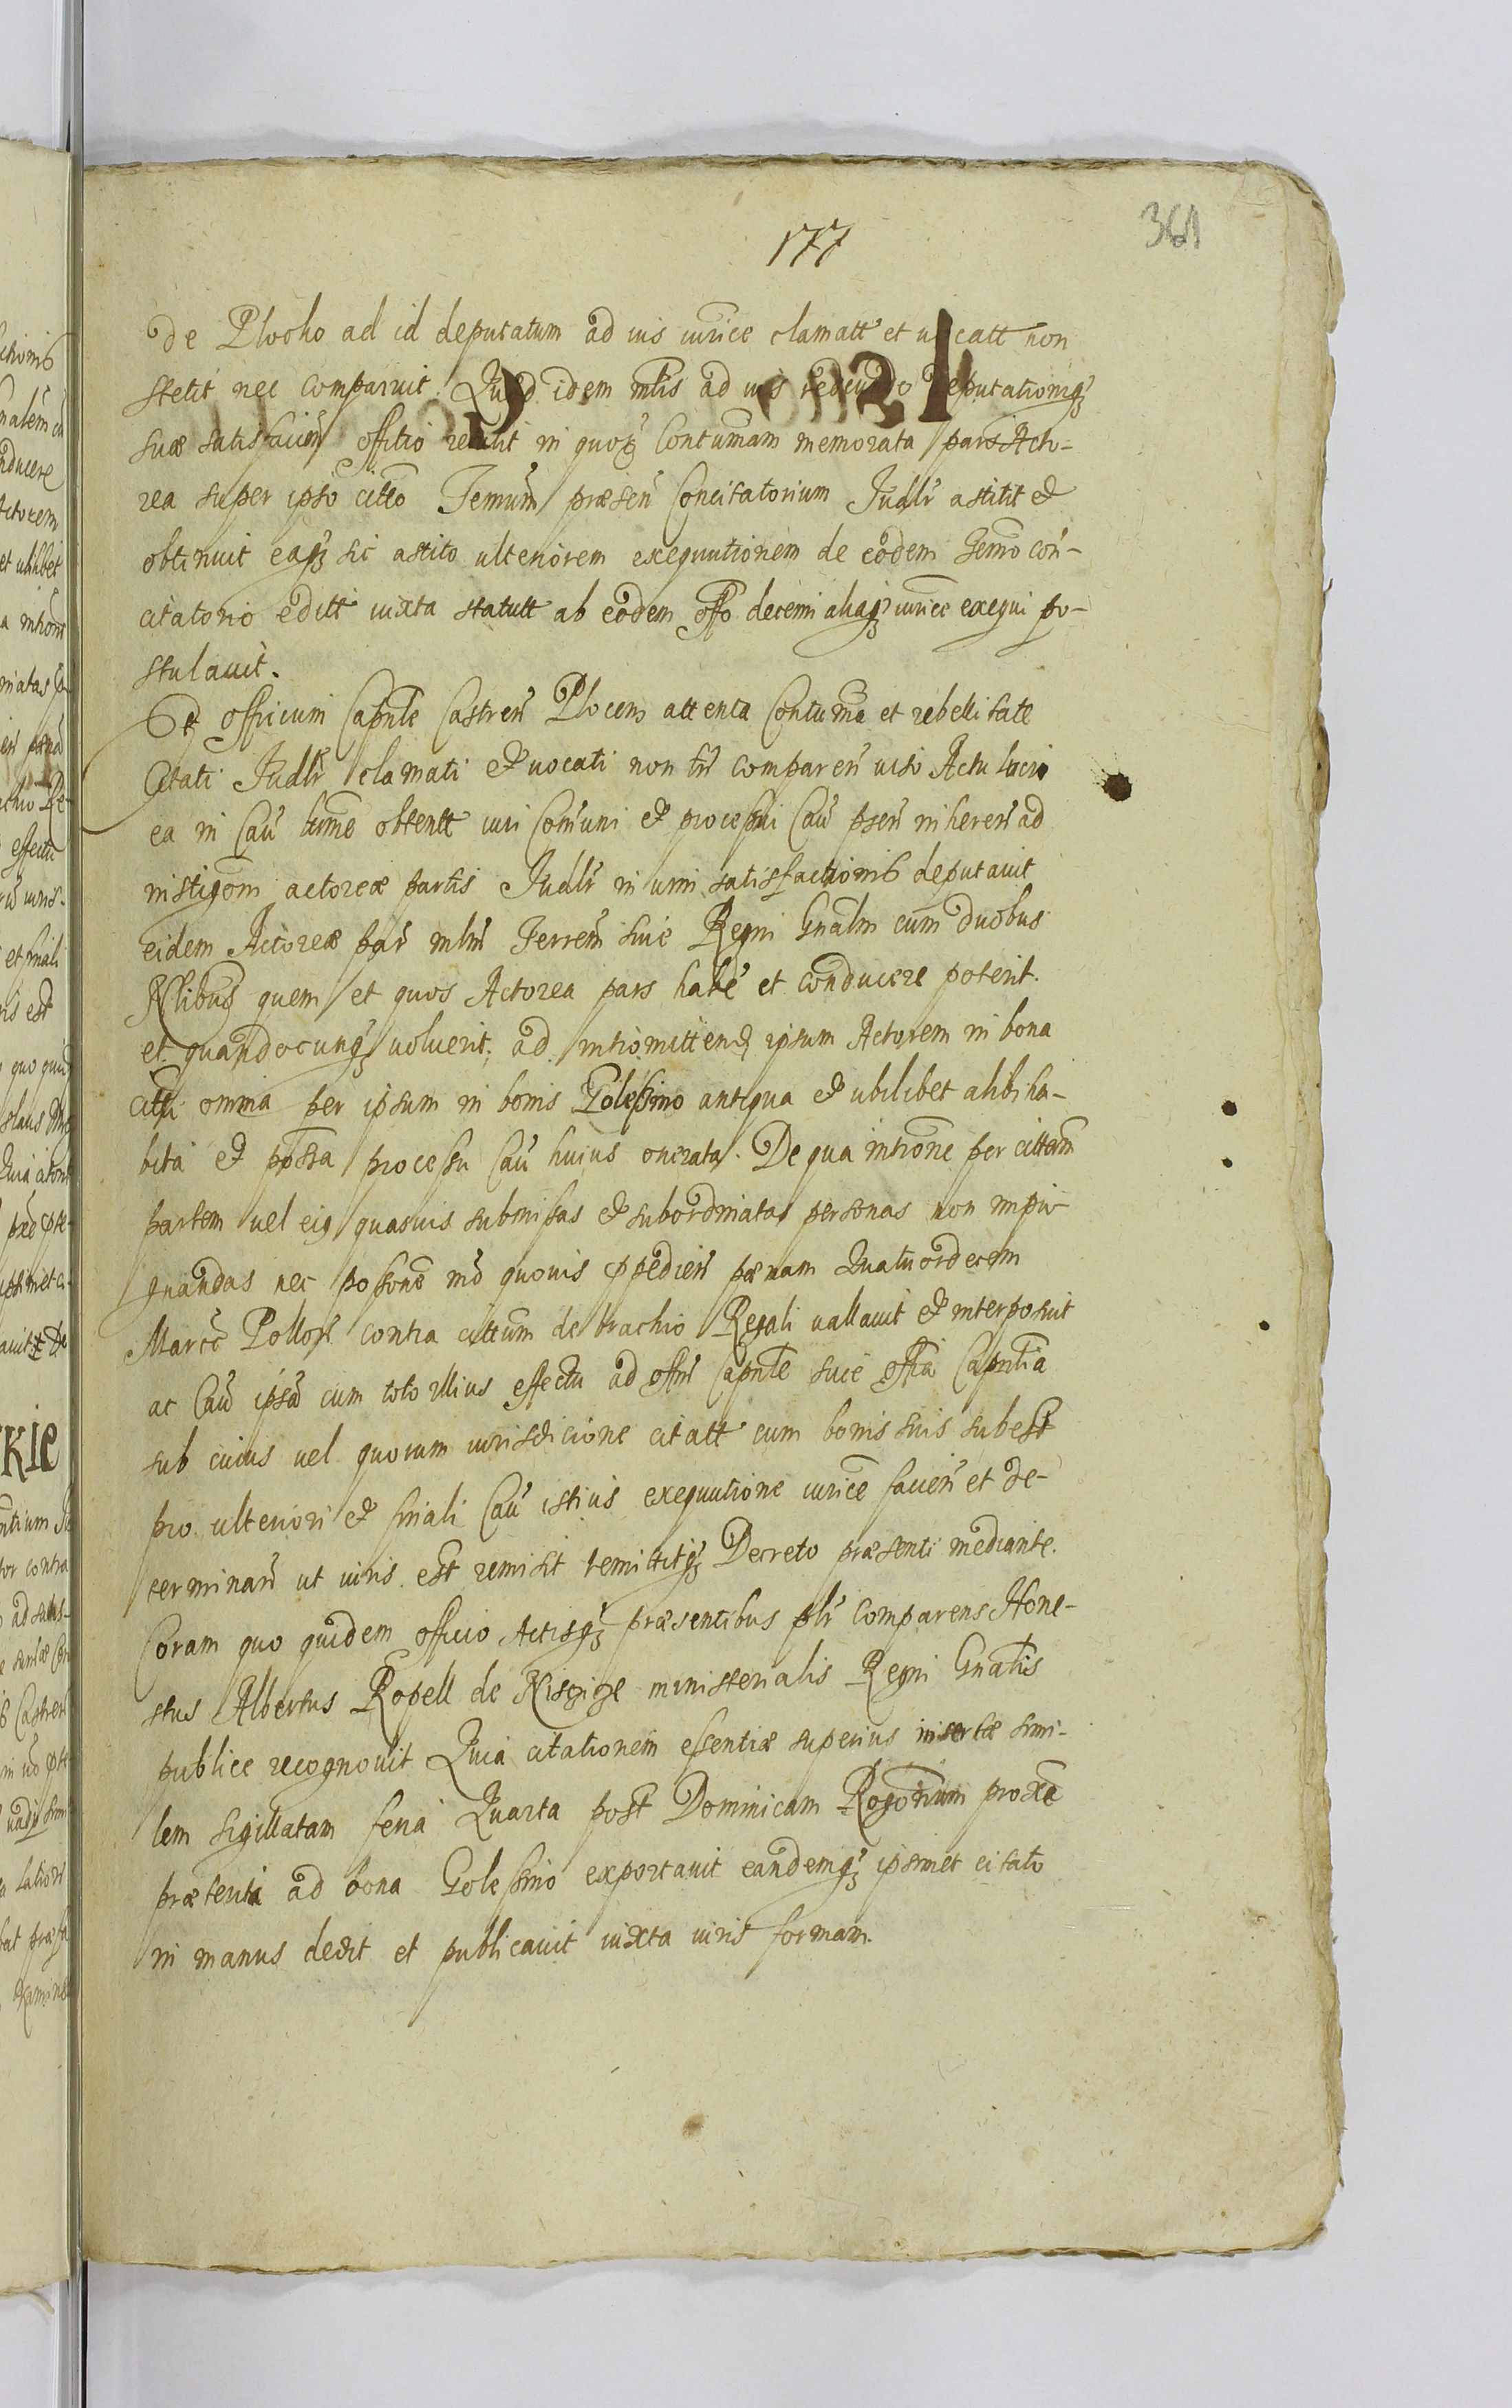 177
361
De Plocko ad id deputatum ad ius iurice clamatt et uocatt non
stetit nec comparuit. Quod idem mlis ad ius redeundo deputationiq
suæ satisfaciem offitio retulit in quoq Contumam memorata pars Acto-
rea super ipso citto Termum præsen Concitatorium Judlr astitit et
obtinuit eaq sic astito ulteriorem exequutionem de eodem Termo con-
citatorio editt iuxta statutt ab eodem offo decerni aliaq iurice exequi po-
stulauit.
Et officium Capnle Castren Plocen attenta Contuma et rebellitate
Citati Judlr clamati et uocati non tn comparen uiso Actu lucri
ea in Cau hmo obtentt iuri Comuni et processui Cau psen inheren ad
instigom actoreæ partis Judlr in urni satisfactionis deputauit
eidem Actoreæ par mlm Terrem siue Regni Gnalm cum duobus
Nlibus quem et quos Actorea pars habe et conducere poterit.
et quandocunq uoluerit, ad intromittend ipsum Actorem in bona
citti omnia per ipsum in bonis Golessino antiqua et ubilibet alibi ha-
bita et possa processu Cau huius onerata. De qua intrione per cittam
partem uel eiq quasuis submissas et subordinatas personas non impu-
gnandas nec possone mo quouis ppedien pænam Quatuordecem
Marcc Pollon contra cittum de brachio Regali uallauit et interposuit
ac Cau ipsa cum toto illius effectu ad offm Capnle siue offia Capnlia
sub cuius uel quorum iurisdicione citatt cum bonis suis subest
pro ulteriori et finali Cau istius exequutione iurice facien et de-
terminan ut iuris est remisit remittitq Decreto præsenti mediante.
Coram quo quidem officio Actisq præsentibus plr Comparens Hone-
stus Albertus Ropell de Niszize ministerialis Regni Gnalis
publice recognouit Quia citationem essentiæ superius insertæ simi-
lem sigillatam feria Quarta post Dominicam Rogonum proxe
præterita ad bona Golessino exportauit eandemq ipsimet citato
in manus dedit et publicauit iuxta iuris formam.